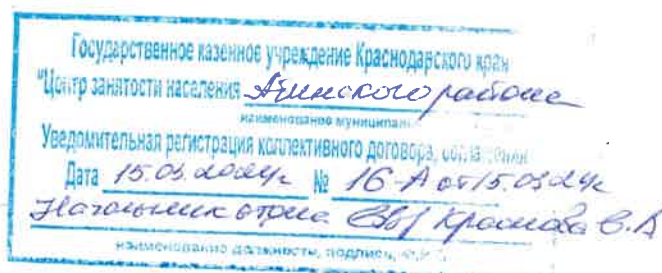 Государственное казенное учреждение Краснодарского края
"Центр занятости населения Абинского района
наименование муниципал
Уведомительная регистрация коллективного договора, соглашения
Дата 15.03.2024г № 16-А от 15.03.24г
Начальник отдела Краснова В.А
наименование должности, подпись,